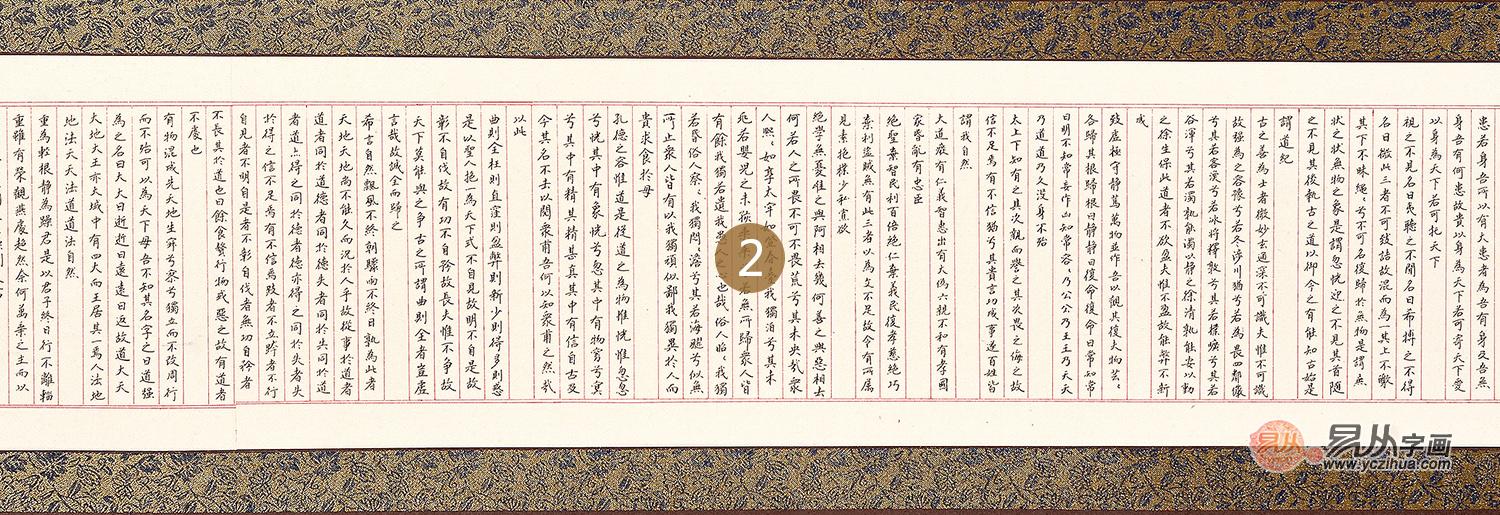 患若身吾所以有大患者為吾有身及吾無
身吾有何患故貴以身為天下若可寄天下愛
以身為天下若可托天下
視之不見名曰夷聽之不聞名曰希搏之不得
名曰微此三者不可致詰故混而為一其上不皦
其下不昧繩〻兮不可名復歸於無物是謂無
狀之狀無物之象是謂忽恍迎之不見其首隨
之不見其後執古之道以御今之有能知古始是
謂道紀
古之善為士者微妙玄通深不可識夫惟不可識
故強為之容豫兮若冬涉川猶兮若畏四鄰儼
兮其若客渙兮若冰將釋敦兮其若樸曠兮其若
谷渾兮其若濁孰能濁以靜之徐清孰能安以動
之徐生保此道者不欲盈夫惟不盈故能弊不新
成
致虛極守靜篤萬物並作吾以觀其復夫物芸〻
各歸其根歸根曰靜靜曰復命復命曰常知常
曰明不知常妄作凶知常容〻乃公公乃王王乃天天
乃道道乃久沒身不殆
太上下知有之其次親而譽之其次畏之侮之故
信不足焉有不信猶兮其貴言功成事遂百姓皆
謂我自然
大道廢有仁義智惠出有大偽六親不和有孝慈國
家昏亂有忠臣
絕聖棄智民利百倍絕仁棄義民復孝慈絕巧
棄利盜賊無有此三者以為文不足故令有所屬
見素抱樸少私寡欲
絕學無憂唯之與阿相去幾何善之與惡相去
何若人之所畏不可不畏荒兮其未央哉眾
人熙〻如享太牢如登春臺我獨泊兮其未
兆若嬰兒之未孩 若無所歸眾人皆
有餘我獨若遺我愚人之心也哉俗人昭〻我獨
若昏俗人察〻我獨悶〻澹兮其若海飂兮似無
所止眾人皆有以我獨頑似鄙我獨異於人而
貴求食於母
孔德之容惟道是從道之為物惟恍惟忽忽
兮恍其中有象恍兮忽其中有物窈兮冥
兮其中有精其精甚真其中有信自古及
今其名不去以閱眾甫吾何以知眾甫之然哉
以此
曲則全枉則直窪則盈弊則新少則得多則惑
是以聖人抱一為天下式不自見故明不自是故
彰不自伐故有功不自矜故長夫惟不爭故
天下莫能與之爭古之所謂曲則全者豈虛
言哉故誠全而歸之
希言自然飄風不終朝驟雨不終日孰為此者
天地天地尚不能久而況於人乎故從事於道者
道者同於道德者同於德失者同於失同於道
者道亦得之同於德者德亦得之同於失者失
於得之信不足焉有不信焉跂者不立跨者不行
自見者不明自是者不彰自伐者無功自矜者
不長其於道也曰餘食贅行物或惡之故有道者
不處也
有物混成先天地生寂兮寥兮獨立而不改周行
而不殆可以為天下母吾不知其名字之曰道強
為之名曰大大曰逝逝曰遠遠曰返故道大天
大地大王亦大域中有四大而王居其一焉人法地
地法天天法道道法自然
重為輕根靜為躁君是以君子終日行不離輜
重雖有榮觀燕處超然奈何萬乘之主而以
2
易从字画
www.yczihua.com